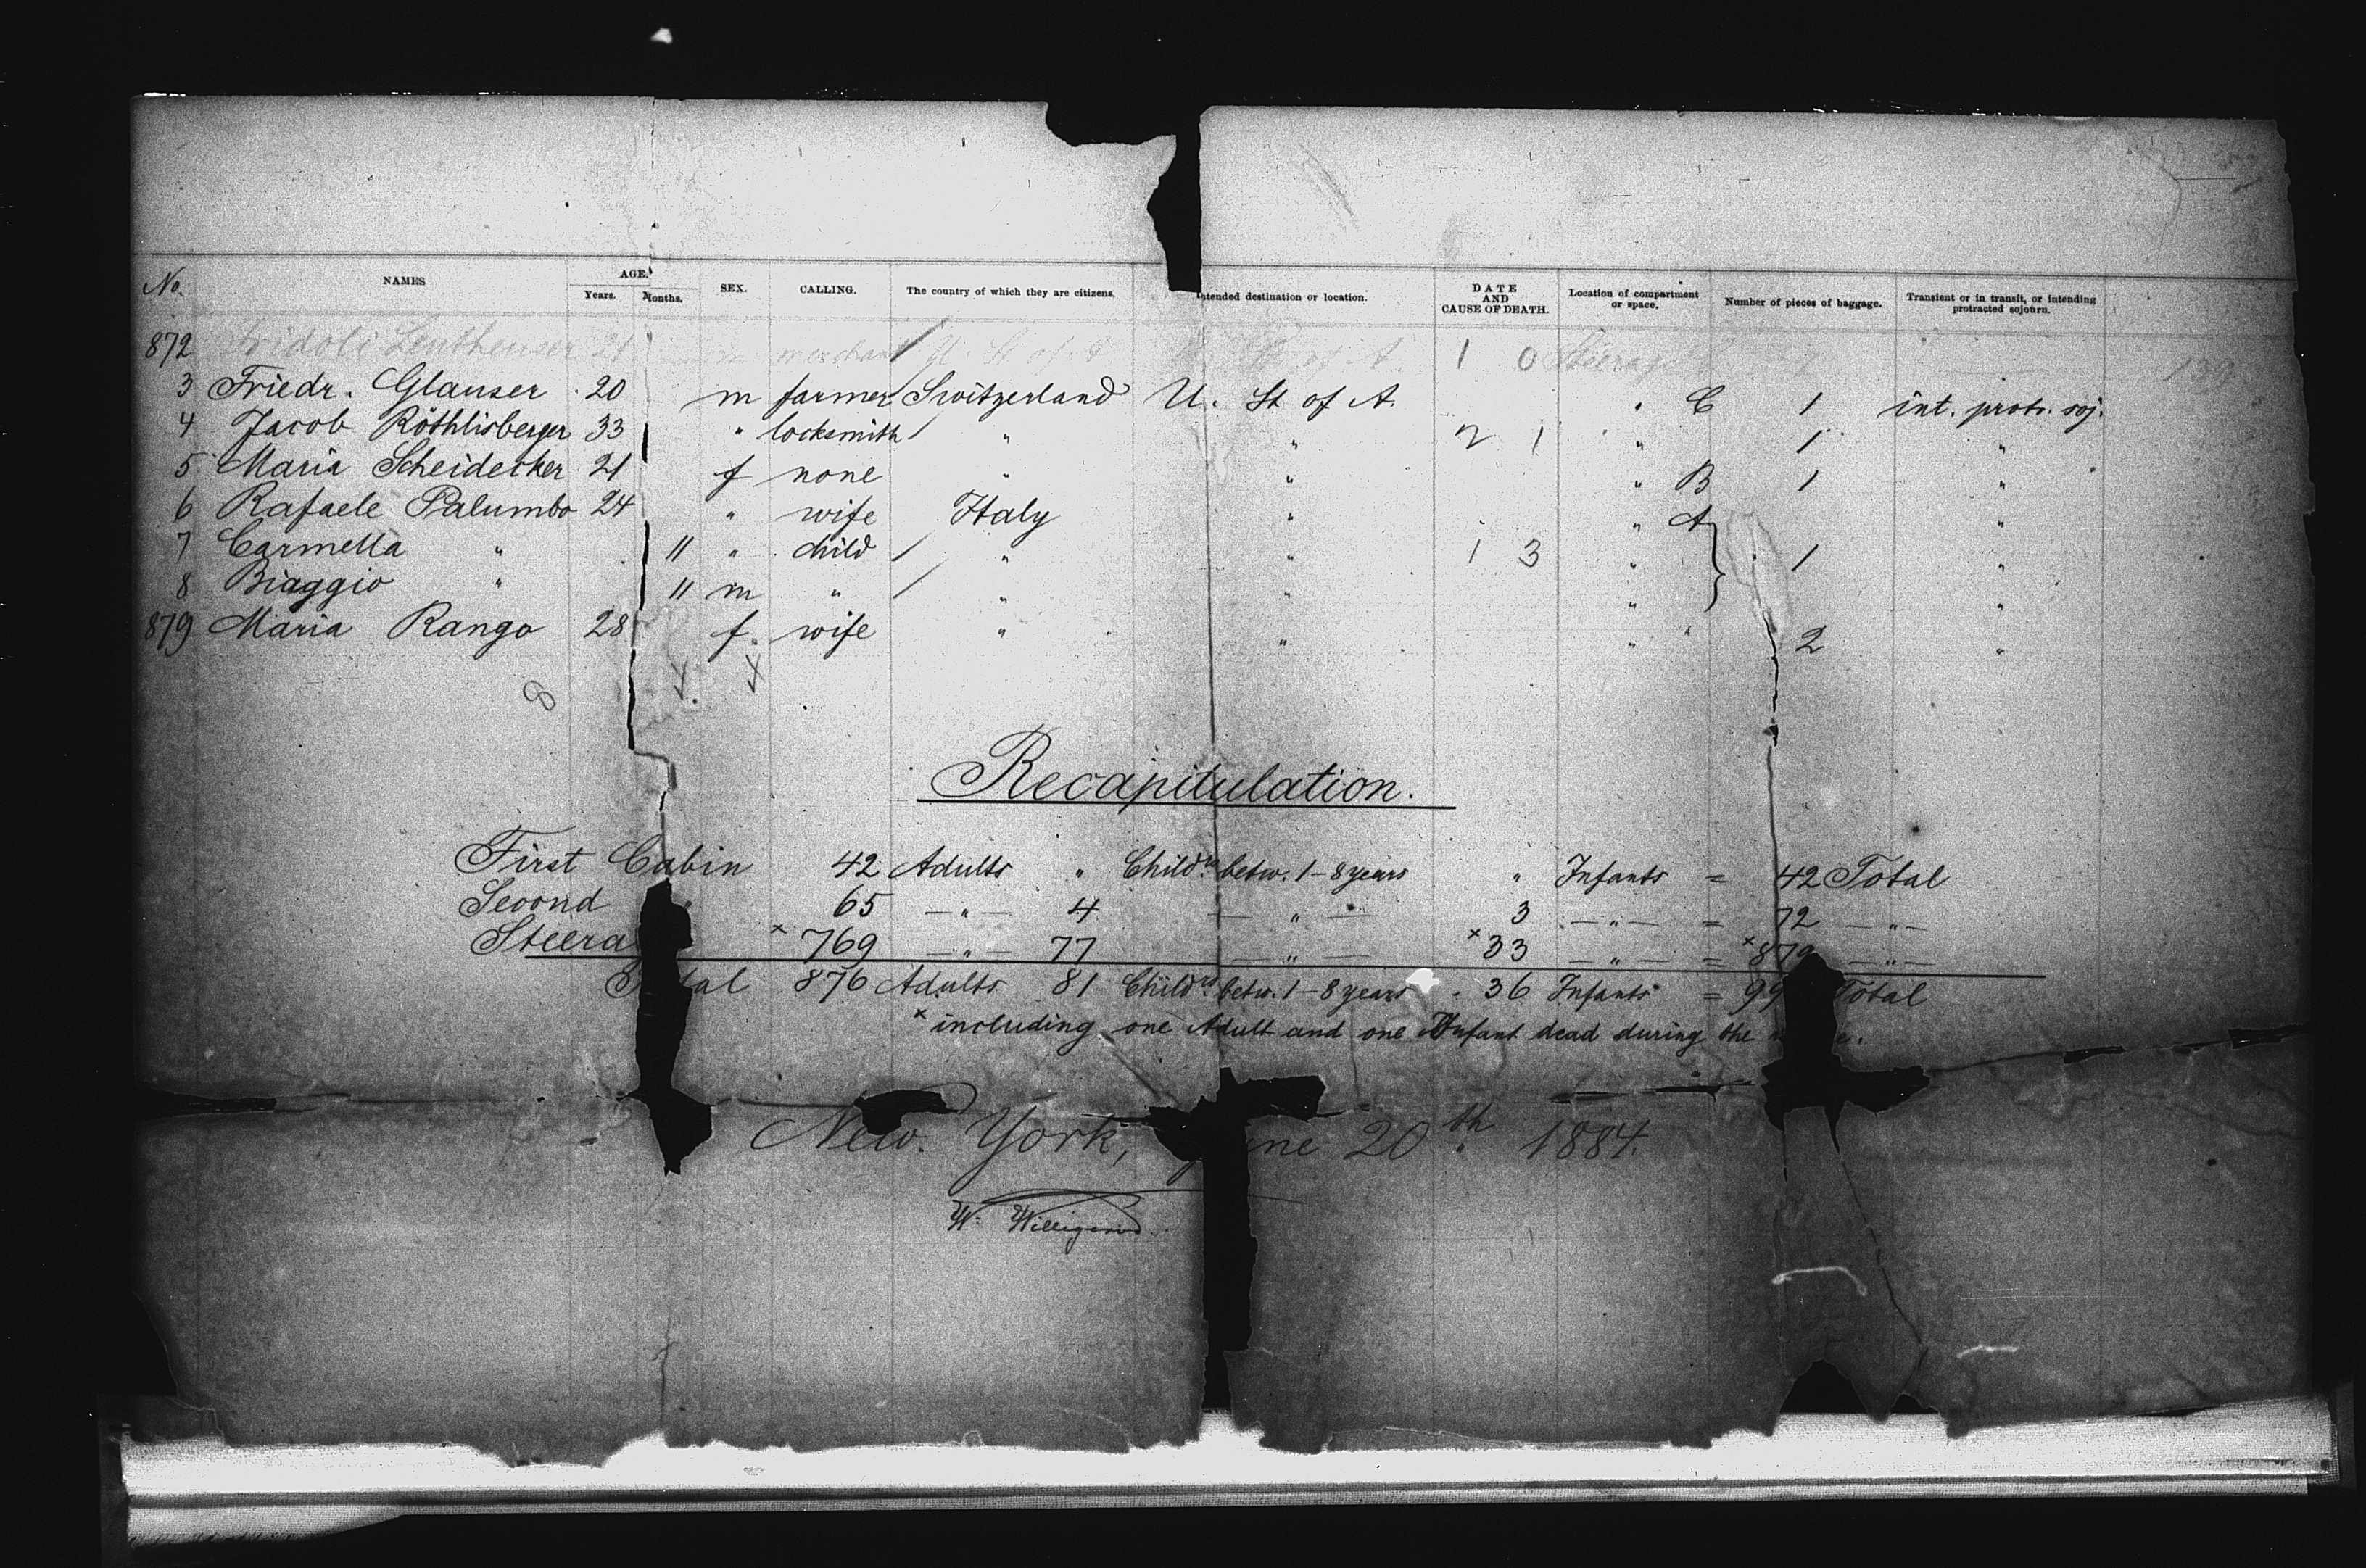 No. NAMES AGE. Years. Months. SEX. CALLING. The country of which they are citizens. Intended destination or location. DATE AND CAUSE OF DEATH. Location of compartment or space. Number of pieces of baggage. Transient or in transit, or intending protracted sojourn.
872 Fridoli 21 m merchant U. St of A U. St of A. 1 0 Steerage 139
3 Friedr. Glauser 20 m farmer Switzerland U. St of A. " C 1 int. protr. soj.
4 Jacob Röthlisberger 33 " locksmith " " 2 1 " 1 "
5 Maria Scheidecker 21 f none " " " B 1 "
6 Rafaele Palumbo 24 " wife Italy " " A "
7 Carmella " 11 " child " " 1 3 " 1 "
8 Biaggio " 11 m " " " " "
879 Maria Rango 28 f. wife " " " " 2 "
8 4 4
Recapitulation.
First Cabin 42 Adults " Childrn betw. 1-8 years " Infants = 42 Total
Second " 65 — " — 4 — " — 3 — " — = 72 — " —
Steera x 769 — " — 77 — " — x 33 — " — = x 879 — " —
Total 876 Adults 81 Childrn betw. 1-8 years 36 Infants = 99 Total
x including one Adult and one Infant dead during the
New York, June 20th 1884.
W. Willigerod